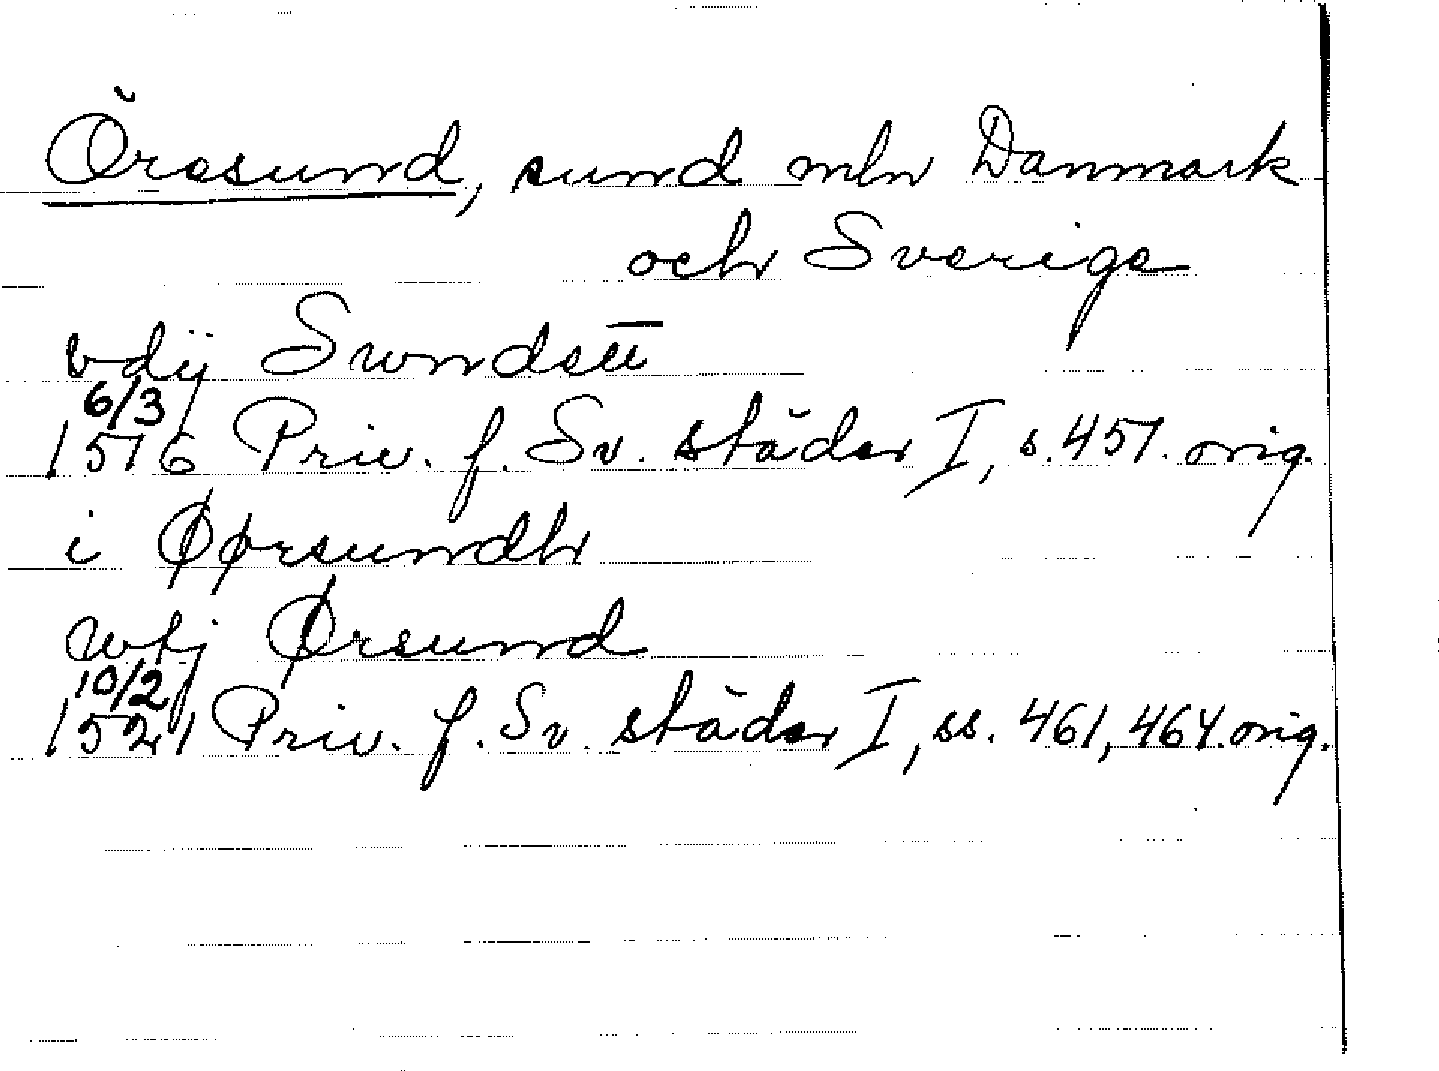 Öresund, sund mln Danmark
och Sverige
vdij Swndsu̅
6/3
1516 Priv. f. Sv. städer I, s. 451. orig.
i Øørsundh
wtj Ørsund
10/2
1521 Priv. f. Sv. städer I, ss. 461, 464. orig.